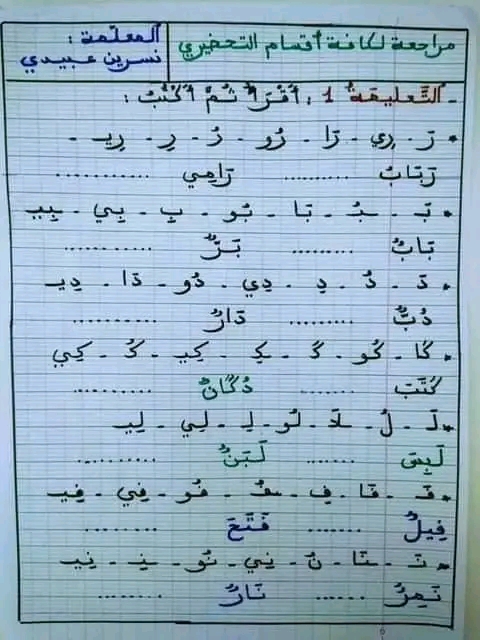 مراجعة لكافة أقسام التحضيري
المعلّمة :
نسرين عبيدي
- التَّعليمَةُ 1 : أَقْرَأُ ثُمَّ أَكْتُبُ :
* رَ - رِي - رَا - رُو - رُ - رِ - رِيـ -
رَبَابُ .......... رَامِي ............
* بَـ - بُـ - بَا - بُو - بِ - بِي - بِيـ
بَابُ .......... بَرٌّ ............
* دَ - دُ - دِ - دِي - دُو - دَا - دِيـ
دُبٌّ .......... دَارٌ ............
* كَا - كُو - كَـ - كِـ - كِيـ - كُـ - كِي
كُتَبَ .......... دُكَّانٌ ............
* لَـ - لُ - لَا - لُو - لِـ - لِي - لِيـ
لَبِسَ ........ لَبَنٌ ............
* فَـ - فَا - فِـ - ـفُـ - فُو - فِي - فِيـ
فِيلٌ ........ فَتَحَ ............
* نَـ - نَا - نُ - نِي - نُو - نِـ - نِيـ
نَمِرٌ ........ نَارٌ ............